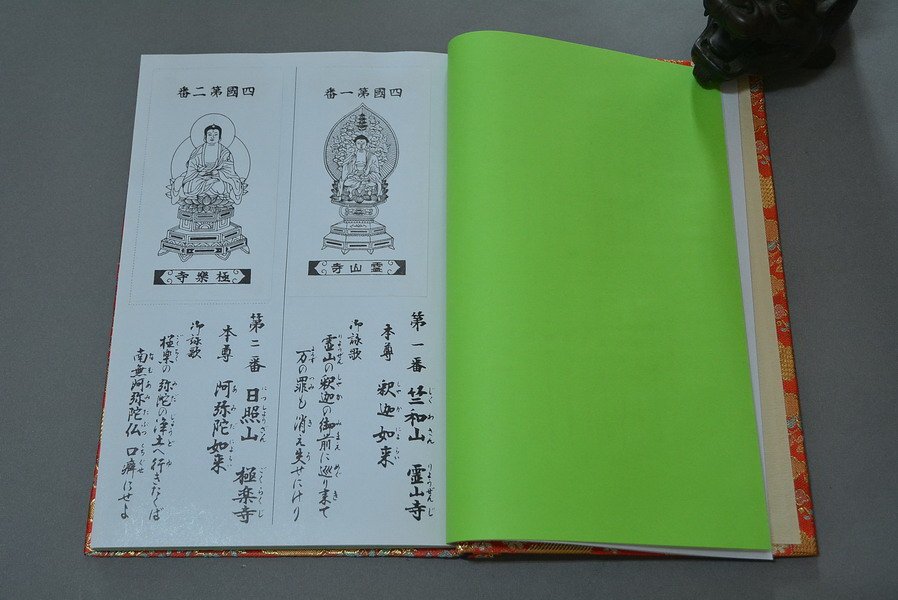 四國第一番
霊山寺
第一番 竺和山 霊山寺
本尊 釈迦如来
御詠歌
霊山の釈迦の御前に巡り来て
万の罪も消え失せにけり
四國第二番
極樂寺
第二番 日照山 極楽寺
本尊 阿弥陀如来
御詠歌
極楽の弥陀の浄土へ行きたくば
南無阿弥陀仏口癖にせよ